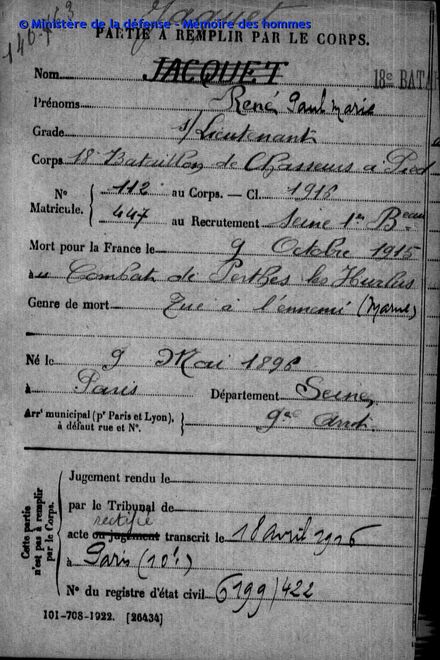 © Ministère de la défense - Mémoire des hommes
Jacquet
PARTIE À REMPLIR PAR LE CORPS.
Nom JACQUET
18e BATA
Prénoms René Paul Marie
Grade s/Lieutenant
Corps 18 Bataillon de Chasseurs à Pied
N° Matricule. { 112 au Corps. — Cl. 1916
447 au Recrutement Seine 1er Beau
Mort pour la France le 9 Octobre 1915
au Combat de Perthes les Hurlus
Genre de mort Tué à l'ennemi (Marne)
Né le 9 Mai 1896
à Paris Département Seine
Arrt municipal (pr Paris et Lyon), à défaut rue et N°. } 9e Arrt.
Cette partie n'est pas à remplir par le Corps.
Jugement rendu le
par le Tribunal de
rectifié
acte ou jugement transcrit le 18 avril 1916
à Paris (10e)
N° du registre d'état civil 6199/422
101-708-1922. [26434]